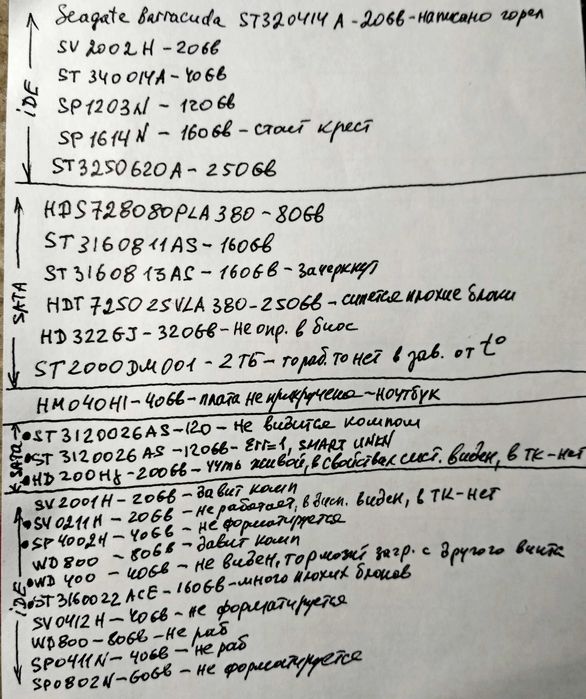 IDE
Seagate Barracuda ST320414A - 20Gb - написано горел
SV2002H - 20Gb
ST340014A - 40Gb
SP1203N - 120Gb
SP1614N - 160Gb - стоит крест
ST3250620A - 250Gb
SATA
HDS728080PLA380 - 80Gb
ST3160811AS - 160Gb
ST3160813AS - 160Gb - зачеркнут
HDT725025VLA380 - 250Gb - сыпется плохие блоки
HD322GJ - 320Gb - не опр. в биос
ST2000DM001 - 2ТБ - то раб. то нет в зав. от t°
HM040HI - 40Gb - плата не прикручена - ноутбук
SATA
• ST3120026AS - 120 - не видится компом
• ST3120026AS - 120Gb - Err=1, SMART UNKN
• HD200HJ - 200Gb - чуть живой, в свойствах сист. виден, в ТК - нет
IDE
SV2001H - 20Gb - давит комп
• SV0211H - 20Gb - не работает, в дисп. виден, в ТК - нет
• SP4002H - 40Gb - не форматируется
WD800 - 80Gb - давит комп
• WD400 - 40Gb - не виден, тормозит загр. с другого винта
• ST3160022ACE - 160Gb - много плохих блоков
SV0412H - 40Gb - не форматируется
WD800 - 80Gb - не раб
SP0411N - 40Gb - не раб
SP0802N - 60Gb - не форматируется